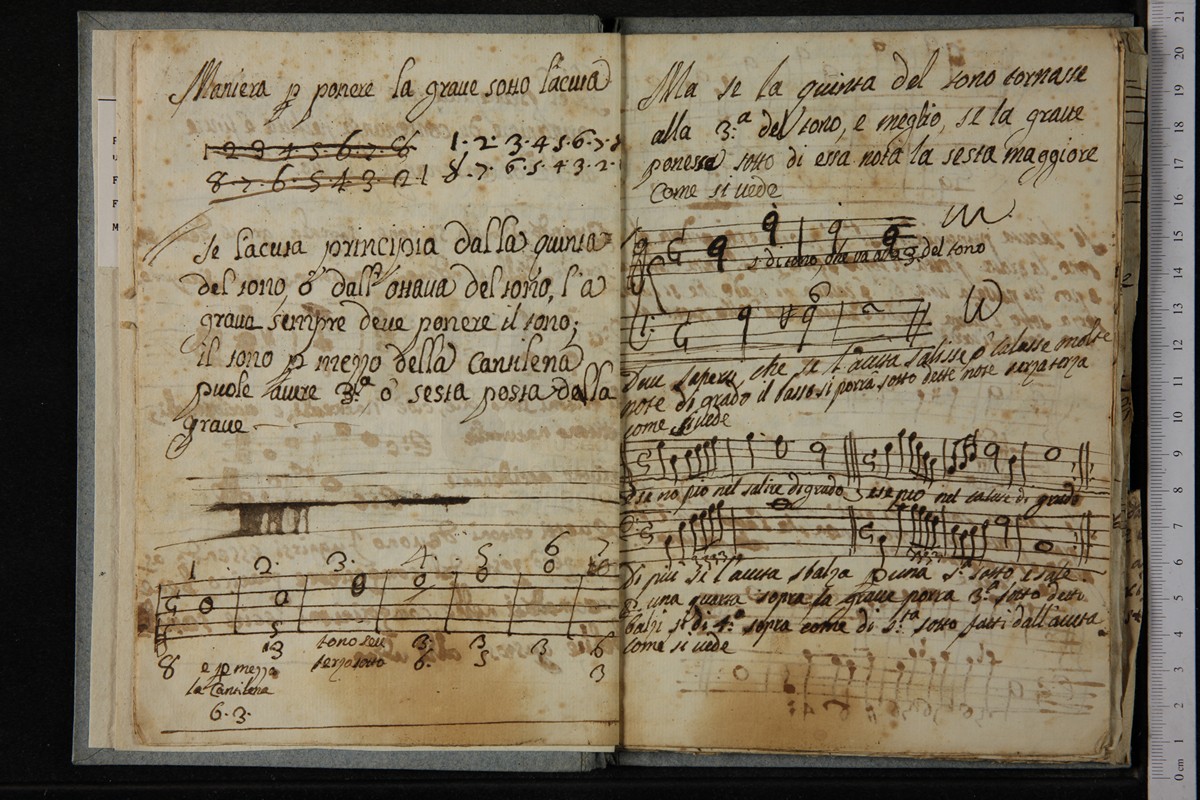 Maniera p ponere la graue sotto l'acuta
1 2 3 4 5 6 7 8
8 7 6 5 4 3 2 1
1. 2. 3. 4. 5. 6. 7. 8
8. 7. 6. 5. 4. 3. 2.
Se l'acuta principia dalla quinta
del tono, ó dall' ottaua del tono, l'a
graue sempre deue ponere il tono;
il tono p mezzo della Cantilena
puole hauere 3.ª ó sesta posta dalla
graue
1. 2. 3. 4. 5. 6 7
8 3 tono seu 3. 3 3 6
terza sotto 6. 5 3
e p mezzo
la Cantilena
6. 3.
Ma se la quinta del tono tornasse
alla 3.ª del tono, e meglio, se la graue
ponesse sotto di essa nota la sesta maggiore
Come si uede
5 di tono, che va alla 3 del tono
6
Deue sapersi, che se l'acuta salisse o calasse molte
note di grado il basso si porrà sotto dette note terza terza
come si uede
nel salire di grado
nel calare di grado
3 3 3 3
Di più se l'acuta sbalza p una 5.ª sotto, e sale
p una quarta sopra la graue porra 3.ª sotto detti
balzi sì di 4.ª sopra come di 5.ta sotto fatti dall'acuta
come si uede